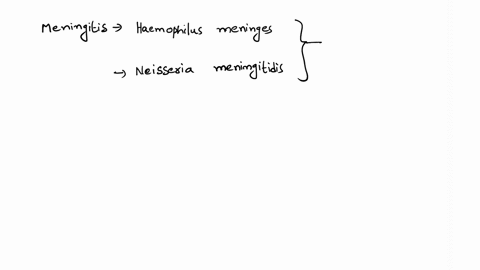 Meningitis → Haemophilus meninges
→ Neisseria meningitidis